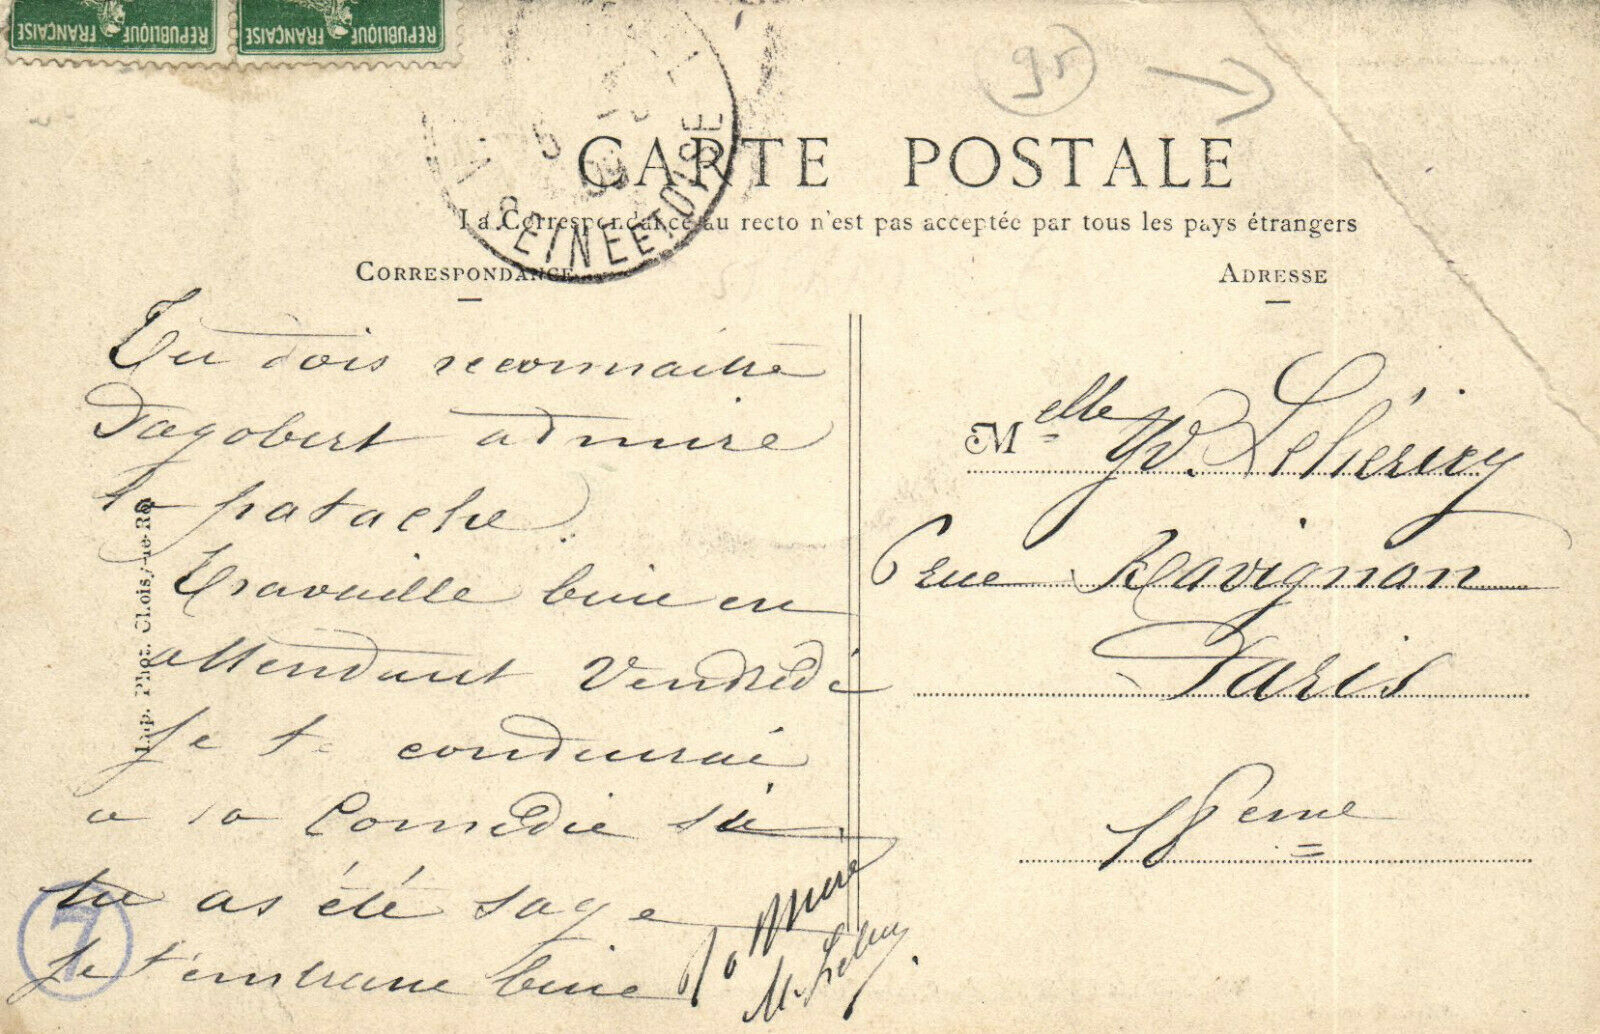 REPUBLIQUE FRANÇAISE
REPUBLIQUE FRANÇAISE
95
SEINE ET OISE
CARTE POSTALE
La Correspondance au recto n'est pas acceptée par tous les pays étrangers
CORRESPONDANCE
ADRESSE
Tu dois reconnaitre
Dagobert admire
la patache.
Travaille bien en
attendant Vendredi
Je te conduirai
a la Comédie si
tu as été sage
Je t'embrasse bien
Ta Mère
M.
7
Imp. Phot. Choisy-le-Roi
Melle Yv. Lehéricy
6 rue Ravignan
Paris
18eme